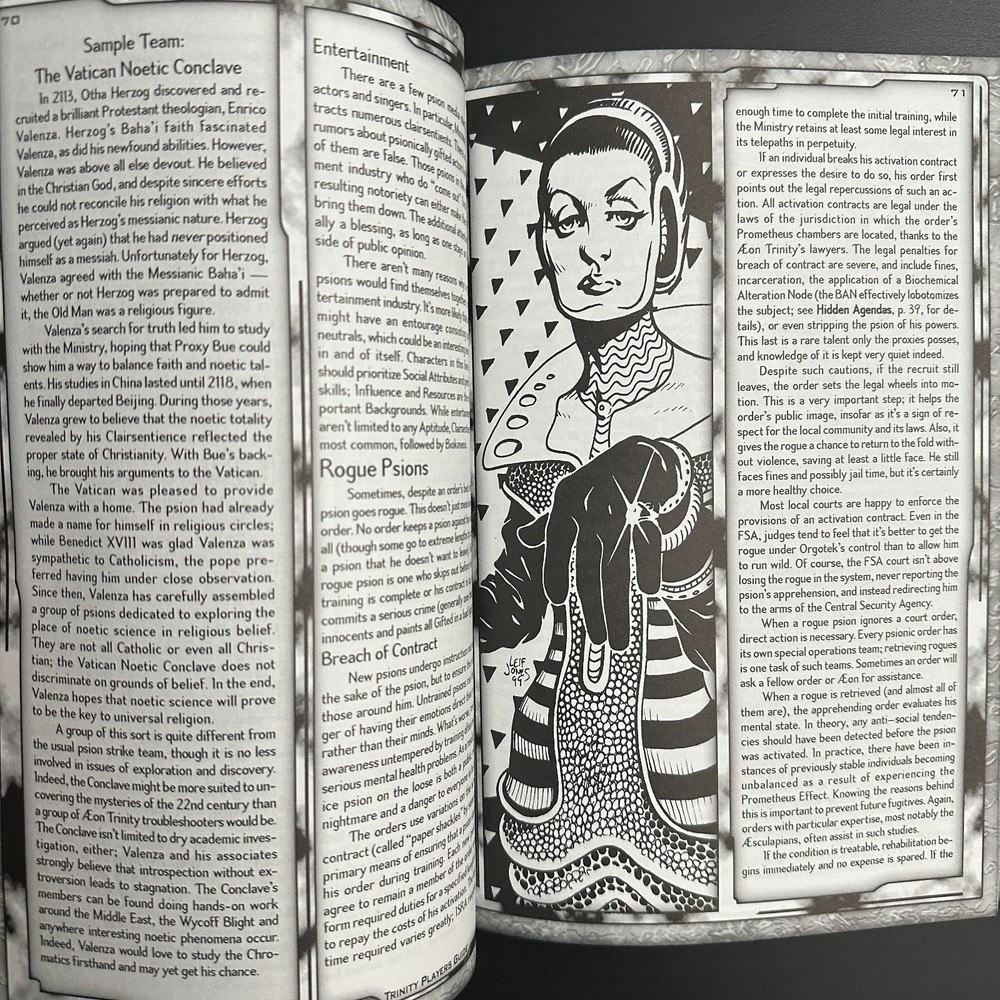 70
Sample Team:
The Vatican Noetic Conclave
In 2113, Otha Herzog discovered and re-
cruited a brilliant Protestant theologian, Enrico
Valenza. Herzog's Baha'i faith fascinated
Valenza, as did his newfound abilities. However,
Valenza was above all else devout. He believed
in the Christian God, and despite sincere efforts
he could not reconcile his religion with what he
perceived as Herzog's messianic nature. Herzog
argued (yet again) that he had never positioned
himself as a messiah. Unfortunately for Herzog,
Valenza agreed with the Messianic Baha'i —
whether or not Herzog was prepared to admit
it, the Old Man was a religious figure.
Valenza's search for truth led him to study
with the Ministry, hoping that Proxy Bue could
show him a way to balance faith and noetic tal-
ents. His studies in China lasted until 2118, when
he finally departed Beijing. During those years,
Valenza grew to believe that the noetic totality
revealed by his Clairsentience reflected the
proper state of Christianity. With Bue's back-
ing, he brought his arguments to the Vatican.
The Vatican was pleased to provide
Valenza with a home. The psion had already
made a name for himself in religious circles;
while Benedict XVIII was glad Valenza was
sympathetic to Catholicism, the pope pre-
ferred having him under close observation.
Since then, Valenza has carefully assembled
a group of psions dedicated to exploring the
place of noetic science in religious belief.
They are not all Catholic or even all Chris-
tian; the Vatican Noetic Conclave does not
discriminate on grounds of belief. In the end,
Valenza hopes that noetic science will prove
to be the key to universal religion.
A group of this sort is quite different from
the usual psion strike team, though it is no less
involved in issues of exploration and discovery.
Indeed, the Conclave might be more suited to un-
covering the mysteries of the 22nd century than
a group of Æon Trinity troubleshooters would be.
The Conclave isn't limited to dry academic inves-
tigation, either; Valenza and his associates
strongly believe that introspection without ex-
troversion leads to stagnation. The Conclave's
members can be found doing hands-on work
around the Middle East, the Wycoff Blight and
anywhere interesting noetic phenomena occur.
Indeed, Valenza would love to study the Chro-
matics firsthand and may yet get his chance.
Entertainment
There are a few psion media
actors and singers. In particular,
tracts numerous clairsentients.
rumors about psionically gifted
of them are false. Those psions in
ment industry who do "come out"
resulting notoriety can either make
bring them down. The additional
ally a blessing, as long as one stays
side of public opinion.
There aren't many reasons why
psions would find themselves together
tertainment industry. It's more likely
might have an entourage consisting
neutrals, which could be an interesting
in and of itself. Characters in this
should prioritize Social Attributes and
skills; Influence and Resources are
portant Backgrounds. While
aren't limited to any Aptitude,
most common, followed by Biokinesis.
Rogue Psions
Sometimes, despite an order's best
psion goes rogue. This doesn't just mean
order. No order keeps a psion against
all (though some go to extreme lengths
a psion that he doesn't want to leave)
rogue psion is one who skips out before
training is complete or his contract is
commits a serious crime (generally one
innocents and paints all Gifted in a bad
Breach of Contract
New psions undergo instruction
the sake of the psion, but to ensure the
those around him. Untrained psions
ger of having their emotions direct
rather than their minds. What's worse,
awareness untempered by training
serious mental health problems. As
ice psion on the loose is both a public
nightmare and a danger to everyone
The orders use variations on the
contract (called "paper shackles" by
primary means of ensuring that a
his order during training. Each new
agree to remain a member of the
form required duties for a specified
to repay the costs of his activation.
time required varies greatly; ISRA
TRINITY PLAYERS GUIDE
LEIF
JONES
97
71
enough time to complete the initial training, while
the Ministry retains at least some legal interest in
its telepaths in perpetuity.
If an individual breaks his activation contract
or expresses the desire to do so, his order first
points out the legal repercussions of such an ac-
tion. All activation contracts are legal under the
laws of the jurisdiction in which the order's
Prometheus chambers are located, thanks to the
Æon Trinity's lawyers. The legal penalties for
breach of contract are severe, and include fines,
incarceration, the application of a Biochemical
Alteration Node (the BAN effectively lobotomizes
the subject; see Hidden Agendas, p. 39, for de-
tails), or even stripping the psion of his powers.
This last is a rare talent only the proxies posses,
and knowledge of it is kept very quiet indeed.
Despite such cautions, if the recruit still
leaves, the order sets the legal wheels into mo-
tion. This is a very important step; it helps the
order's public image, insofar as it's a sign of re-
spect for the local community and its laws. Also, it
gives the rogue a chance to return to the fold with-
out violence, saving at least a little face. He still
faces fines and possibly jail time, but it's certainly
a more healthy choice.
Most local courts are happy to enforce the
provisions of an activation contract. Even in the
FSA, judges tend to feel that it's better to get the
rogue under Orgotek's control than to allow him
to run wild. Of course, the FSA court isn't above
losing the rogue in the system, never reporting the
psion's apprehension, and instead redirecting him
to the arms of the Central Security Agency.
When a rogue psion ignores a court order,
direct action is necessary. Every psionic order has
its own special operations team; retrieving rogues
is one task of such teams. Sometimes an order will
ask a fellow order or Æon for assistance.
When a rogue is retrieved (and almost all of
them are), the apprehending order evaluates his
mental state. In theory, any anti–social tenden-
cies should have been detected before the psion
was activated. In practice, there have been in-
stances of previously stable individuals becoming
unbalanced as a result of experiencing the
Prometheus Effect. Knowing the reasons behind
this is important to prevent future fugitives. Again,
orders with particular expertise, most notably the
Æsculapians, often assist in such studies.
If the condition is treatable, rehabilitation be-
gins immediately and no expense is spared. If the